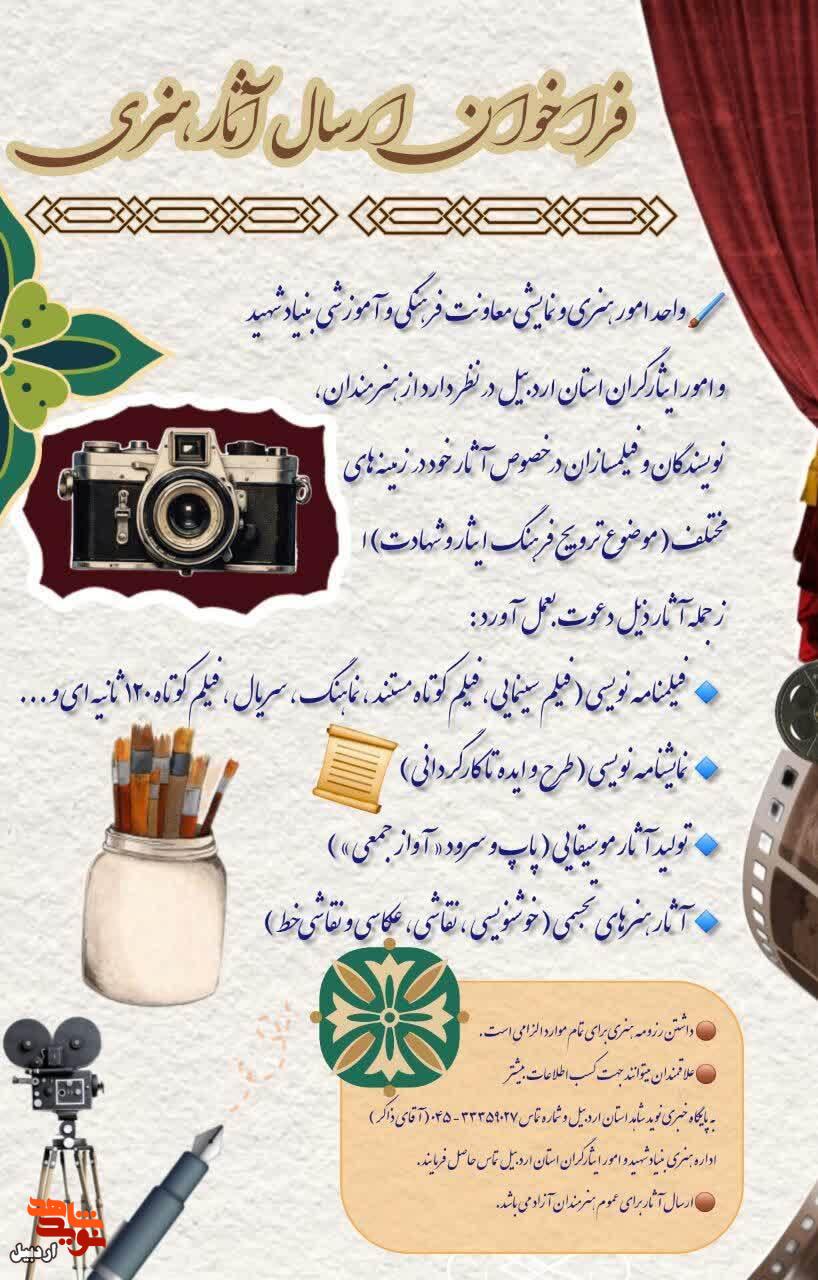 فراخوان ارسال آثار هنری
واحد امور هنری و نمایشی معاونت فرهنگی و آموزشی بنیاد شهید
و امور ایثارگران استان اردبیل در نظر دارد از هنرمندان،
نویسندگان و فیلمسازان درخصوص آثار خود در زمینه های
مختلف ( موضوع ترویج فرهنگ ایثار و شهادت ) ا
ز جمله آثار ذیل دعوت بعمل آورد :
🔷 فیلمنامه نویسی ( فیلم سینمایی، فیلم کوتاه مستند ، نماهنگ ، سریال ، فیلم کوتاه ۱۲۰ ثانیه ای و ...
🔷 نمایشنامه نویسی ( طرح و ایده تا کارگردانی )
🔷 تولید آثار موسیقایی ( پاپ و سرود « آواز جمعی » )
🔷 آثار هنرهای تجسمی ( خوشنویسی ، نقاشی ، عکاسی و نقاشی خط )
داشتن رزومه هنری برای تمام موارد الزامی است .
علاقمندان میتوانند جهت کسب اطلاعات بیشتر
به پایگاه خبری نوید شاهد استان اردبیل و شماره تماس ۳۳۳۵۹۰۲۷ - ۰۴۵ ( آقای ذاکر )
اداره هنری بنیاد شهید و امور ایثارگران استان اردبیل تماس حاصل فرمایند .
ارسال آثار برای عموم هنرمندان آزاد می باشد .
نوید شاهد
اردبیل